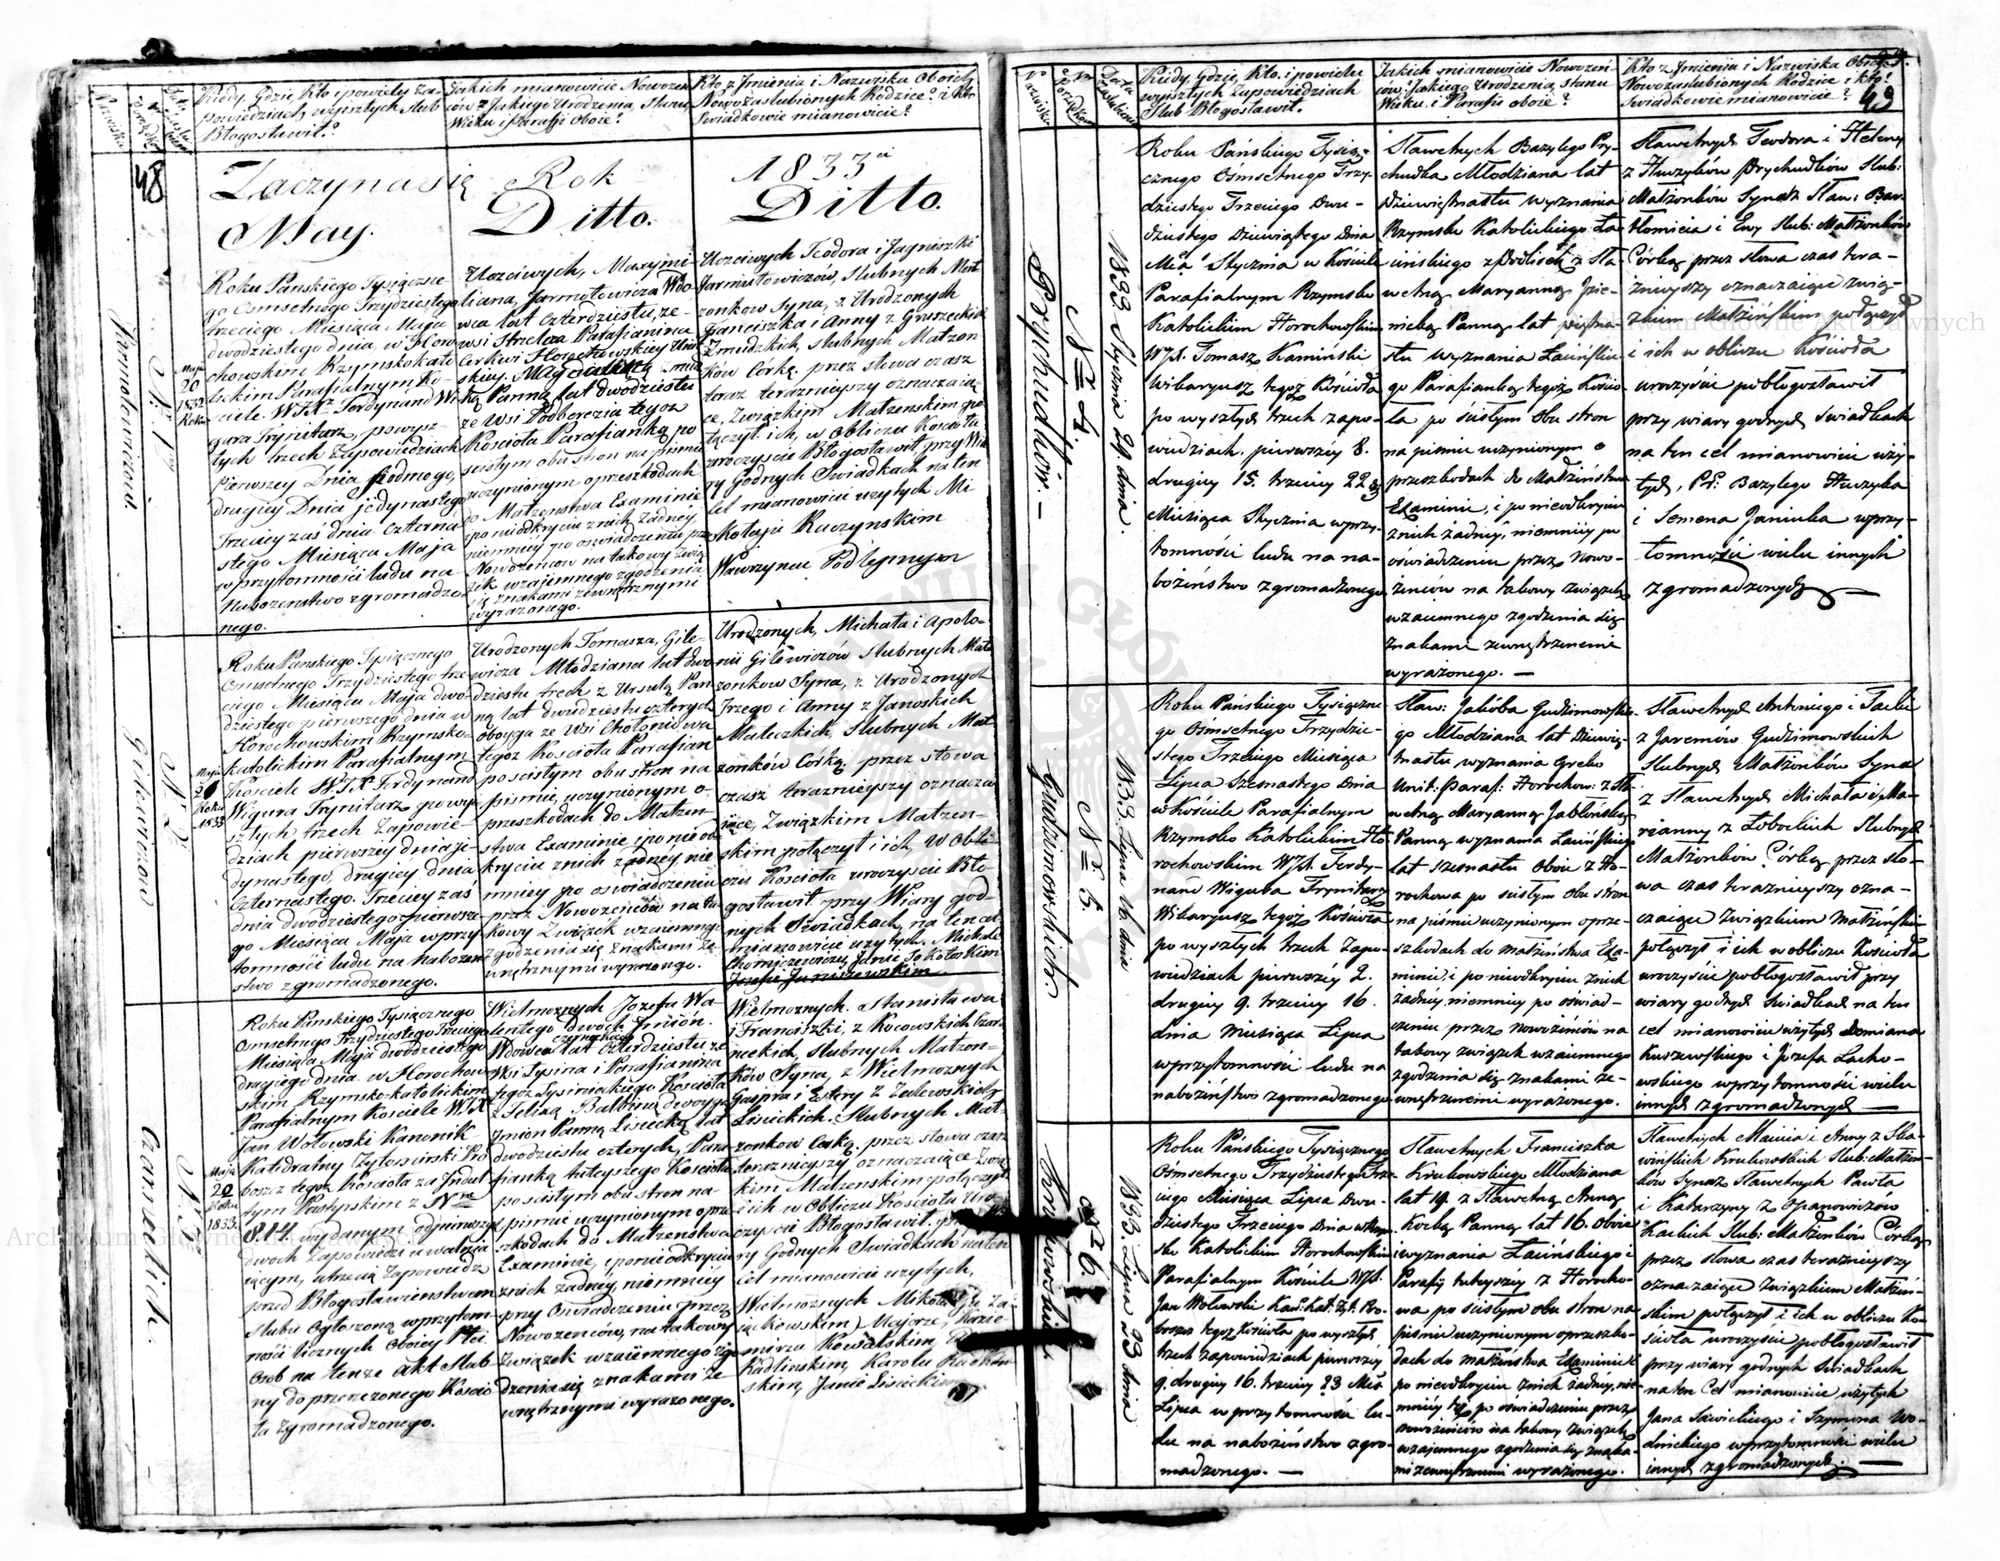 Kiedy, Gdzie, Kto i powieley Za-
powiedziach, wyisztych, Slub
Błogosławił?
Jakich mianowicie Nowozen
ców z Jakiego Urodzenia, Stanu
Wieku i Parafii Oboie?
Kto z Jmienia i Nazwiska Oboich
Nowozaslubionych Rodzice? i Kto
Swiadkowie mianowicie?
48
Zaczyna się Rok 1833
May. Ditto. Ditto.
Jarmołowiczow
N. 1
Maja
20
1832
Roku
Roku Panskiego Tysiączne
go Osmsetnego Trzydziestego
trzeciego Miesiąca Maja
dwodziestego dnia, w Horo
chowskim Rzymskokato
lickim Parafialnym Ko-
sciele WJX Ferdynand Wi
gura Trynitarz, powysz-
łych trzech Zapowiedziach
Pierwszey Dnia siodmego,
drugiey Dnia jedynastego
Trzeciey zas dnia czterna
stego Miesiąca Maja
w przytomności ludu na
Nabozenstwo zgromadzo
nego.
Uczciwych, Maxymi-
liana, Jarmołowicza Wdo-
wca lat czterdziestu, ze-
wsi Strzelcza Parafianina
Cerkwi Horochowskiey Unit
skiey. Magdaleną Zmudz
ką Panną lat dwodziestu
ze Wsi Podberezia tegoz
Kosciola Parafianką po
scisłym obu stron na pismie
uczynionym o przeszkodach
do Małzenstwa Examinie
i po nieodkryciu z nich Zadney
niemniey po oswiadczeniu przez
Nowozencow na takowy Zwią
zek wzajemnego zgodzenia
się znakami zewnętrznymi
wyrazonego.
Uczciwych Teodora i Jagnieszki
Jarmułowiczow, slubnych Mał
zonkow Syna, z Urodzonych
Franciszka i Anny z Gruszeckich
Zmudzkich, slubnych Małzon
ków Corką, przez słowa czasz
teraz terazniejszy oznacza ją-
ce, Związkim Małzenskim po-
łączył ich, w Obliczu Kościoła
uroczyście Błogosławił przy Wia
ry Godnych Swiadkach na ten
cel mianowicie uzytych Mi
kołaju Raczynskim
Wawrzyncu Podlesnym
Gilewiczow
N. 2
Maja
21
Roku
1833
Roku Panskiego Tysiącznego
Osmsetnego Trzydziestego trze
ciego Miesiąca Maja dwo-
dziestego pierwszego dnia w
Horochowskim Rzymsko-
katolickim Parafialnym
Kościele WJX Ferdynand
Wigura Trynitarz powy
szłych trzech Zapowie-
dziach pierwszey dnia je-
dynastego, drugiey dnia
Czternastego. Trzeciey zaś
dnia dwodziestego pierwsze-
go Miesiąca Maja w przy
tomności ludu na Nabozen
stwo zgromadzonego.
Urodzonych Tomasza, Gile-
wicza Młodziana lat dwo
dziestu trech z Urszulą Pan
ną lat dwudziestu czterych
oboyga ze Wsi Chołoniowa
tegoz Kosciola Parafian
po scisłym obu stron na
pismie, uczynionym o-
przeszkodach do Małzen
stwa Examinie i po nie od
kryciu znich żądney nie
mniey po oswiadczeniu
przez Nowozencow na ta
kowy Związek wzaiemnego
zgodzenia się Znakami ze
wnętrznymi wyrazonego.
Urodzonych, Michała i Apolo-
nii Gilewiczow slubnych Małz
zonkow Syna, z Urodzonych
Jrzego i Anny z Janoskich
Małeckich, slubnych Małz
zonków Córką, przez słowa
czasz terazniejszy oznacza
jące, Związkim Małzen-
skim połączył i ich, w Obli-
czu Kosciola uroczyscie Bło
gosławił przy Wiary god
nych Swiadkach, na ten cel
mianowicie uzytych. Michale
Chomiczewiczu, Janie Sokołowskim
Jozefie Janiszewskim
Czarneckich.
N. 3
Maja
22
Roku
1833.
Roku Panskiego Tysiącznego
Osmsetnego Trzydziestego Trzeciego
Miesiąca Maja dwodziestego
drugiego dnia w Horochow
skim Rzymsko-katolickim
Parafialnym Kosciele WJX
Jan Wołowski Kanonik
Katedralny Zytomirski Pro
boszcz tegoz Kosciola za Indul
tym Pasterskim z Nrm
814 wydanym odpierwszych
dwoch Zapowiedzi uwalnia
jącym, a trzecią Zapowiedz
przed Błogosławienstwem
slubu ogłoszoną w przytom
ności licznych Oboiey Płci
Osob na tenze akt Slub
ny do przerzeczonego Kościo
ła zgromadzonego.
Wielmoznych Jozefa Wa
lentego dwoch Jmion
Czarneckiego
Wdowca lat Czterdziestu ze
Wsi Łysina i Parafianina
tegoz Łysiniackiego Kosciola
z Felixą Balbiną dwoyga
Jmion Panną Lisiecką lat
dwodziestu czterych, Para
fianką tuteyszego Kosciola
po scisłym obu stron na-
pismie uczynionym o prze
szkodach do Małzenstwa
Examinie, i po nieodkryciu
znich zadney, niemniey
przy Oswiadczeniu przez
Nowozencow, na takowy
Związek wzaiemnego zgo
dzenia się znakami Ze
wnętrznymi wyrazonego.
Wielmoznych. Stanisława
i Franciszki, z Kocowskich Czar
neckich, slubnych Małzon-
ków Syna, z Wielmoznych
Gaspra i Estery z Zalewskich
Lisieckich Slubnych Mał
zonkow Corką, przez słowa czasz
terazniejszy oznaczaiące Zwią
zkim Małzenskim połączył
i ich w Obliczu Kościoła Uro
czyscie Błogosławił. przy Wia
ry Godnych Swiadkach na ten
Cel mianowicie uzytych,
Wielmoznych Mikołaju Za-
jączkowskim Majorze, Kazie
mierzu Kowalskim,
Radlinskim, Karolu
skim, Janie Lisieckim
Kiedy, Gdzie, Kto, i powielu
wyisztych Zapowiedziach
Slub Błogosławił.
Jakich mianowicie Nowozeń-
ców, Jakiego Urodzenia, stanu
Wieku, i Parafii oboie?
Kto z Jmienia i Nazwiska Oboich
Nowozaslubionych Rodzice i kto?
Swiadkowie mianowicie?
49
Prychudków.
N 4.
1833 Stycznia 29 dnia.
Roku Pańskiego Tysią-
cznego Osmsetnego Trzy-
dziestego Trzeciego Dwu-
dziestego Dziewiątego Dnia
Mca Stycznia w Kościele
Parafialnym Rzymsko
Katolickim Horochowskim
WJX. Tomasz Kamiński
Wikaryusz tegoż Kościoła
po wyszłych trzech zapo-
wiedziach. pierwszey 8.
drugiey 15. trzeciey 22
Miesiąca Stycznia w przy-
tomności ludu na na-
bożeństwo zgromadzonego
Sławetnych Bazylego Pry-
chudka Młodziana lat
Dziewiętnastu wyznania
Rzymsko Katolickiego Ła
cińskiego z Podlisek z Sła
wetną Maryanną Jzie-
niecką Panną lat piętna-
stu wyznania Łacińskie
go Parafianką tegoż Kościo
ła po ścisłym obu stron
na piśmie uczynionym o
przeszkodach do Małżeństwa
Examinie, i po nieodkryciu
z nich żadnéy, niemniéy po
oświadczeniu przez Nowo-
żeńców na takowy Związek
wzaiemnego zgodzenia się
Znakami zewnętrznemi
wyrażonego.
Sławetnych Teodora i Heleny
z Huczyków Prychudków Slub:
Małżonków Syna z Sław: Bar
tłomieia i Ewy Slub: Małżonków
Córką przez słowa czas tera-
źnieyszy oznaczaiące zwią-
zkiem Małżeńskim połączył
i ich w obliczu Kościoła
uroczyście pobłogosławił
przy wiary godnych świadkach
na ten cel mianowicie uży-
tych, PP. Bazylego Huczyka
i Semena Janiuka w przy-
tomności wielu innych
zgromadzonych
Gudzimowskich.
N 5.
1833 Lipca 16 dnia
Roku Pańskiego Tysiączne
go Ośmsetnego Trzydzie-
stego Trzeciego Miesiąca
Lipca Szesnastego Dnia
w Kościele Parafialnym
Rzymsko Katolickim Ho
rochowskim WJX. Ferdy-
nand Wigura Trynitarz
Wikaryusz tegoż Kościoła
po wyszłych trzech Zapo-
wiedziach pierwszéy 2.
drugiey 9. trzeciey 16.
dnia Miesiąca Lipca
w przytomności ludu na
nabożeństwo zgromadzonego
Sław: Jakóba Gudzimowskie-
go Młodziana lat Dziewię-
tnastu wyznania Greko
Unit: Paraf: Horochow: z Sła
wetną Maryanną Jabłońską
Panną wyznania Łacińskiego
lat szesnastu Oboie z Ho-
rochowa po ścisłym obu stron
na piśmie uczynionym o prze-
szkodach do małżeństwa Exa-
minie, i po nieodkryciu znich
żadnéy, niemniey po oświad-
czeniu przez nowożeńców na
takowy związek wzaiemnego
zgodzenia się znakami ze-
wnętrznemi wyrażonego.
Sławetnych Antoniego i Tacki
z Jaremów Gudzimowskich
Slubnych Małżonków Syna
z Sławetnych Michała i Ma-
rianny z Łobockich Slubnych
Małżonków Córką przez sło-
wa czas teraźnieyszy ozna-
czaiące Związkiem Małżeńskim
połączył i ich w obliczu Kościoła
uroczyście pobłogosławił przy
wiary godnych świadkach na ten
cel mianowicie użytych Domiana
Kuszewskiego i Józefa Lacho-
wskiego w przytomności wielu
innych zgromadzonych
Krukowskich.
N 6
1833 Lipca 23 dnia
Roku Pańskiego Tysiącznego
Osmsetnego Trzydziestego Trze-
ciego Miesiąca Lipca Dwu-
dziestego Trzeciego Dnia w Rzym
sko Katolickim Horochowskim
Parafialnym Kościele WJX.
Jan Wołowski Kan: Kat: Żyt. Pro
boszcz tegoż Kościoła po wyszłych
trzech zapowiedziach pierwszéy
9. drugiey 16. trzeciey 23 Mca
Lipca w przytomności lu-
du na nabożeństwo zgro-
madzonego.
Sławetnych Franciszka
Krukowskiego Młodziana
lat 19. z Sławetną Anną
Kocką Panną lat 16. oboie
i wyznania Łacińskiego i
Parafij tuteyszéy z Horocho-
wa po ścisłym obu stron na
piśmie uczynionym o przeszko-
dach do małżeństwa Examinie
po nieodkryciu znich żadnéy, nie-
mniey też po oświadczeniu przez
nowożeńców na takowy związek
wzajemnego zgodzenia się znaka-
mi zewnętrznemi wyrażonego.
Sławetnych Macieia i Anny z Sła-
wińskich Krukowskich Slub: Małżon-
ków Syna z Sławetnych Pawła
i Katarzyny z Opanowiczów
Kockich Slub: Małżonków Córką
przez słowa czas teraźnieyszy
oznaczaiące Związkiem Małżeń-
skim połączył i ich w obliczu Ko-
ścioła uroczyście pobłogosławił
przy wiary godnych świadkach
na ten Cel mianowicie użytych
Jana Sawickiego i Szymona Wo-
dnickiego w przytomności wielu
innych zgromadzonych.
Archiwum Główne Akt Dawnych
Archiwum Główne Akt Dawnych